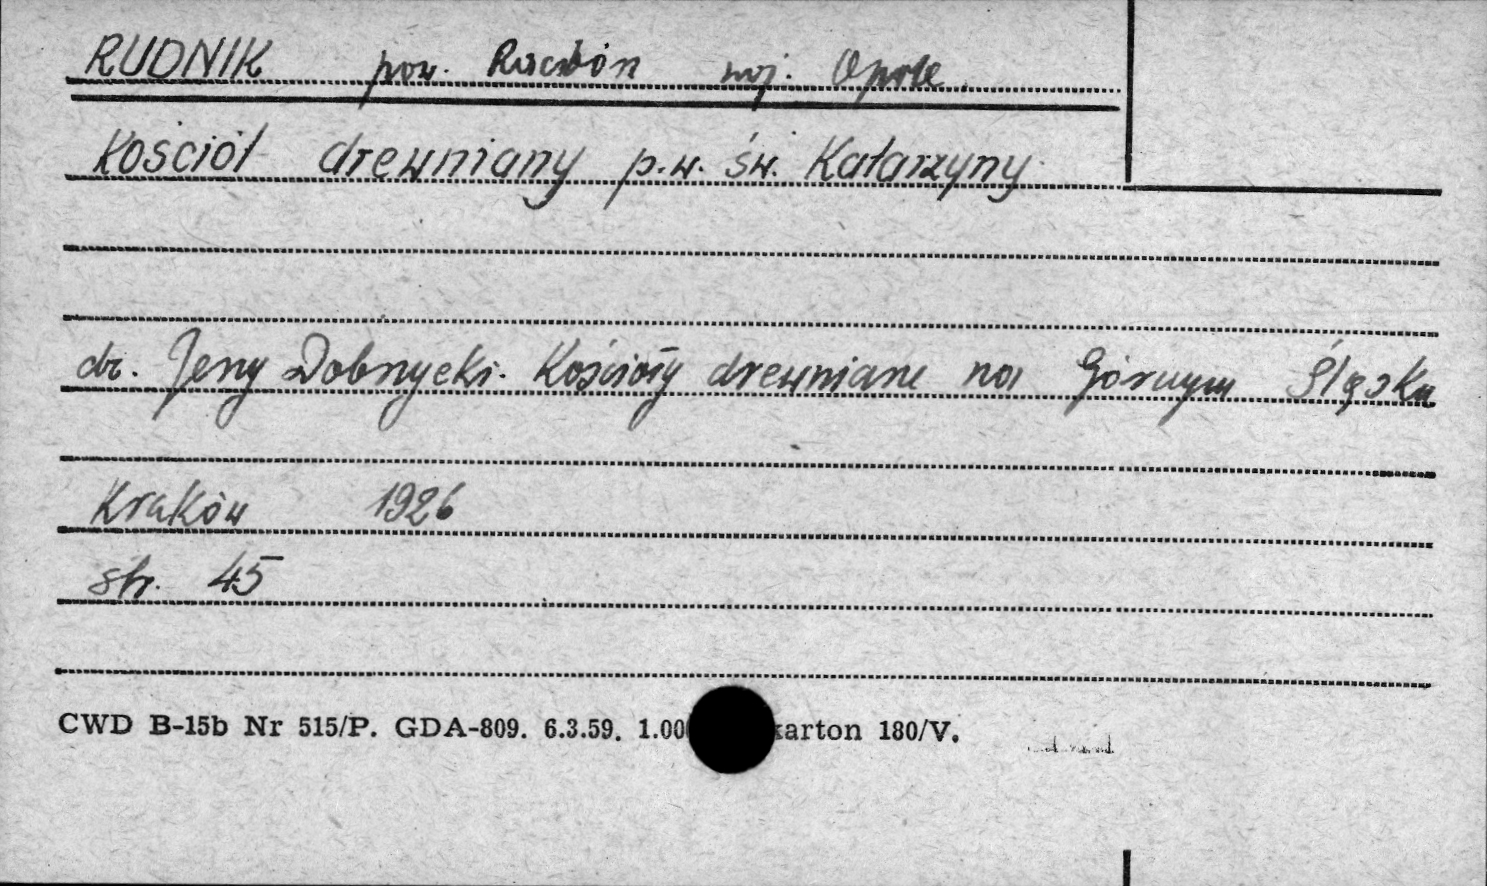 RUDNIK pow. Racibórz woj. Opole
Kościół drewniany p.w. św. Katarzyny
dr. Jerzy Dobrzycki. Kościoły drewniane na Górnym Śląsku
Kraków 1926
str. 45
CWD B-15b Nr 515/P. GDA-809. 6.3.59. 1.00 karton 180/V.